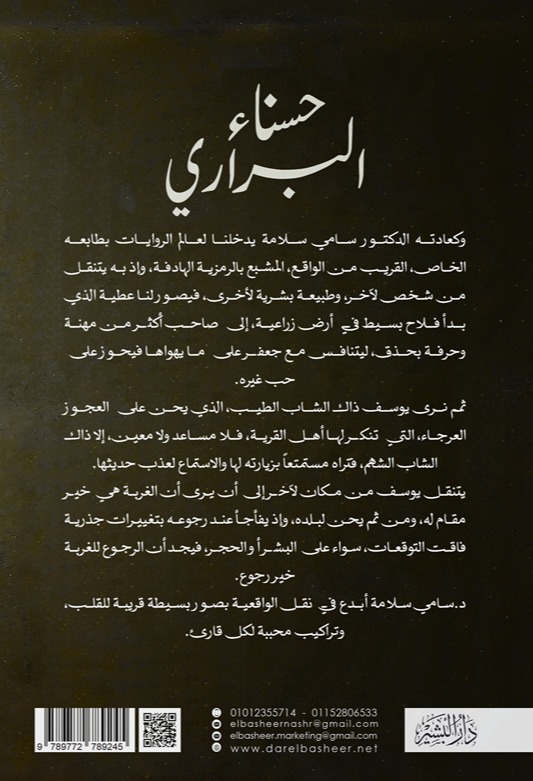 حسناء
البراري
وكعادته الدكتور سامي سلامة يدخلنا لعالم الروايات بطابعه
الخاص، القريب من الواقع، المشبع بالرمزية الهادفة، وإذ به يتنقل
من شخص لآخر، وطبيعة بشرية لأخرى، فيصور لنا عطية الذي
بدأ فلاح بسيط في أرض زراعية، إلى صاحب أكثر من مهنة
وحرفة بحذق، ليتنافس مع جعفر على ما يهواها فيحوز على
حب غيره.
ثم نرى يوسف ذاك الشاب الطيب، الذي يحن على العجوز
العرجاء، التي تنكر لها أهل القرية، فلا مساعد ولا معين، إلا ذاك
الشاب الشهم، فتراه مستمتعاً بزيارته لها والاستماع لعذب حديثها.
يتنقل يوسف من مكان لآخر إلى أن يرى أن الغربة هي خير
مقام له، ومن ثم يحن لبلده، وإذ يفاجأ عند رجوعه بتغييرات جذرية
فاقت التوقعات، سواء على البشر أو الحجر، فيجد أن الرجوع للغربة
خير رجوع.
د.سامي سلامة أبدع في نقل الواقعية بصور بسيطة قريبة للقلب،
وتراكيب محببة لكل قارئ.
01012355714 - 01152806533
elbasheernashr@gmail.com
elbasheer.marketing@gmail.com
www.darelbasheer.net
9 789772 789245
دار البشير